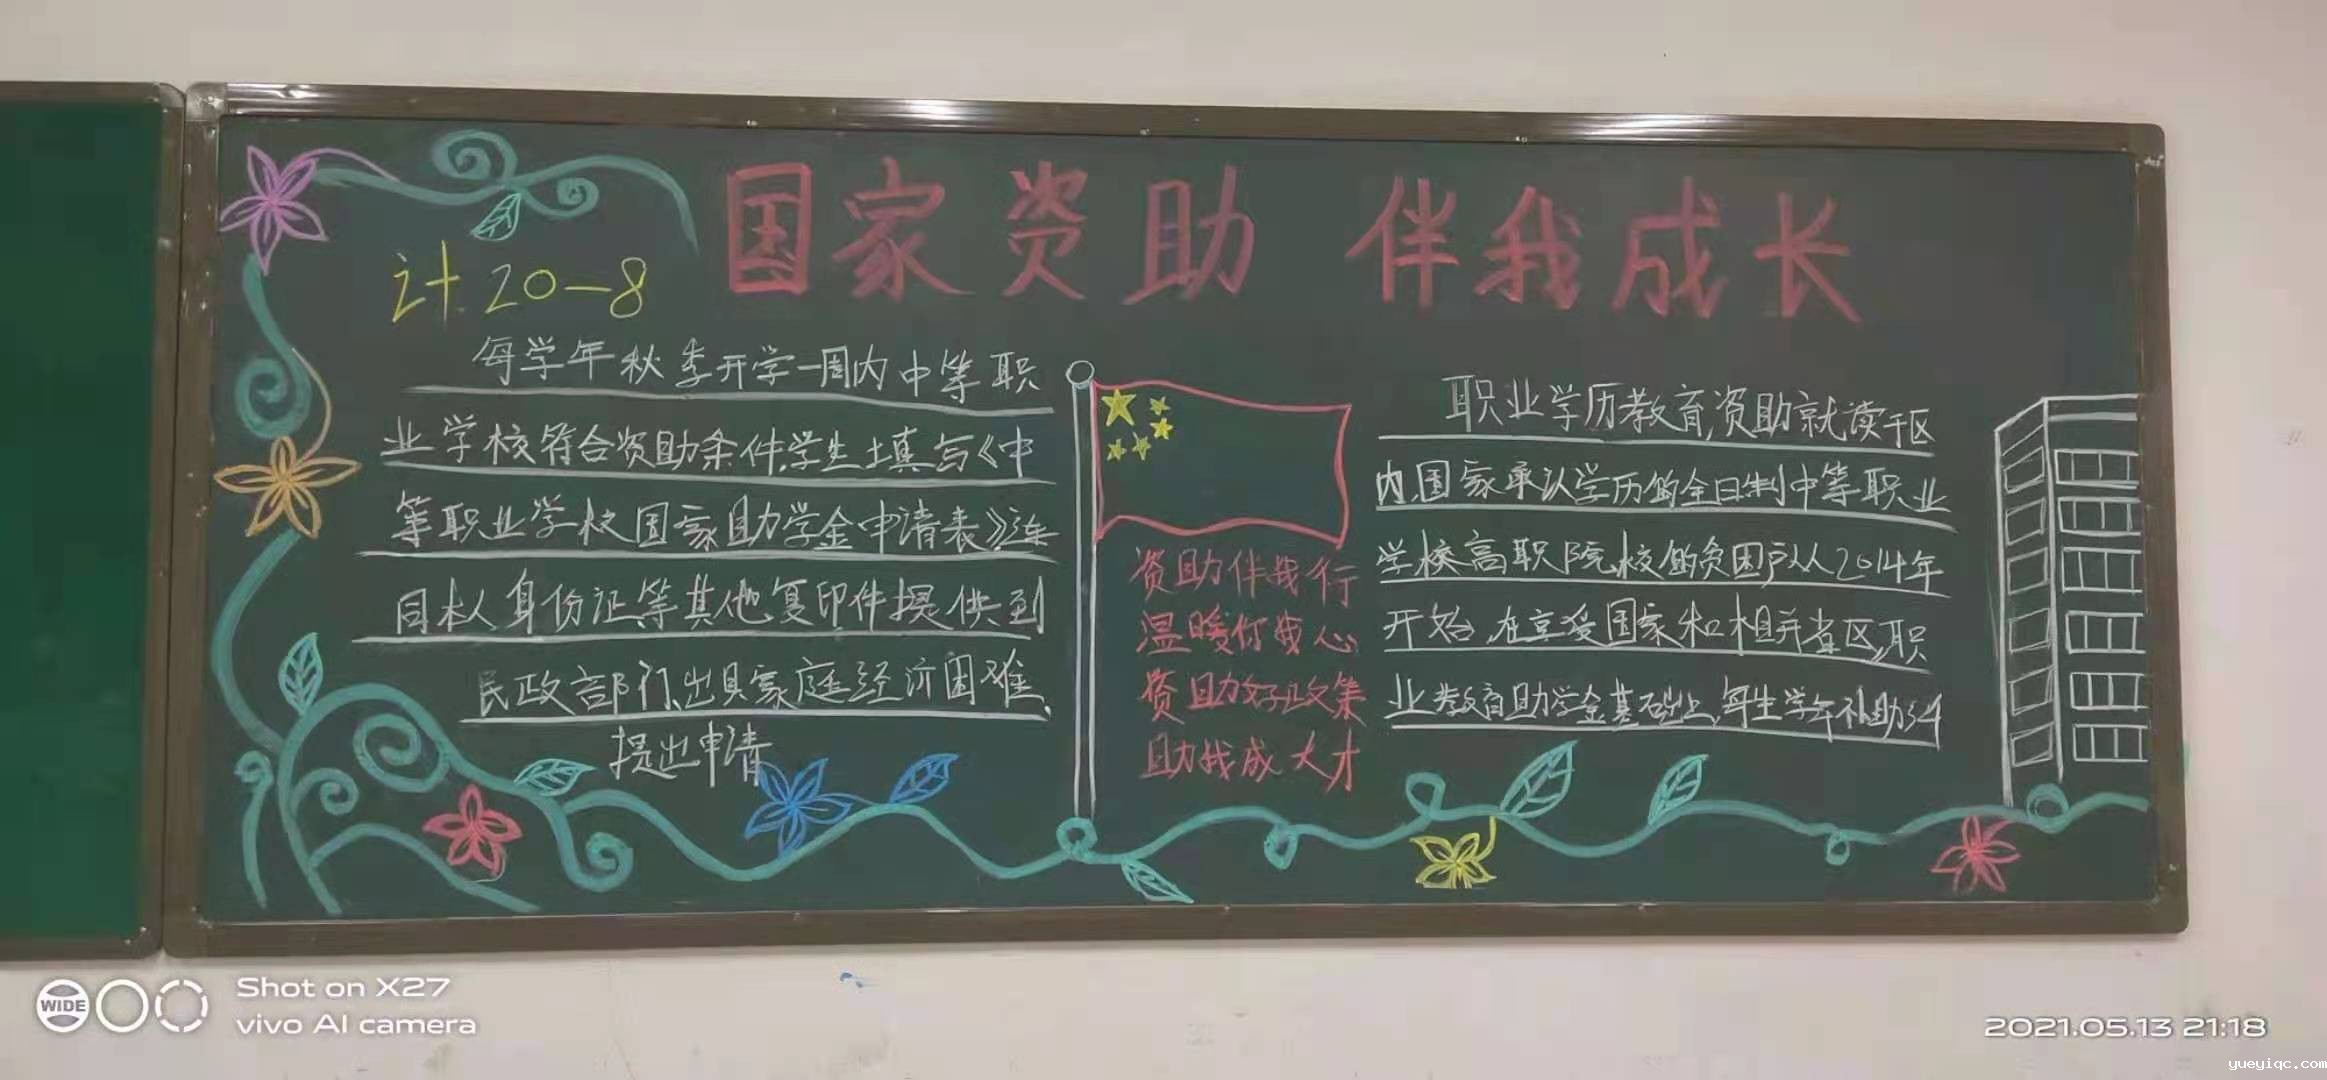 国家资助 伴我成长
计20-8
每学年秋季开学一周内中等职
业学校符合资助条件,学生填写《中
等职业学校国家助学金申请表》连
同本人身份证,等其他复印件提供到
民政部门,出具家庭经济困难,
提出申请
资助伴我行
温暖你我心
资助好政策
助我成大才
职业学历教育,资助就读于区
内国家承认学历的全日制中等职业
学校高职院校的贫困户从2014年
开始,在享受国家和相并省区,职
业教育助学金基础上,每生学年补助
Shot on X27
vivo AI camera
WIDE
2021.05.13 21:18
yueyiqc.com